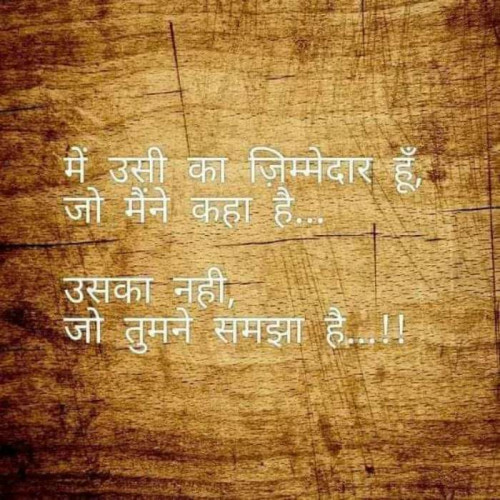 में उसी का ज़िम्मेदार हूँ,
जो मैंने कहा है...
उसका नही,
जो तुमने समझा है...!!